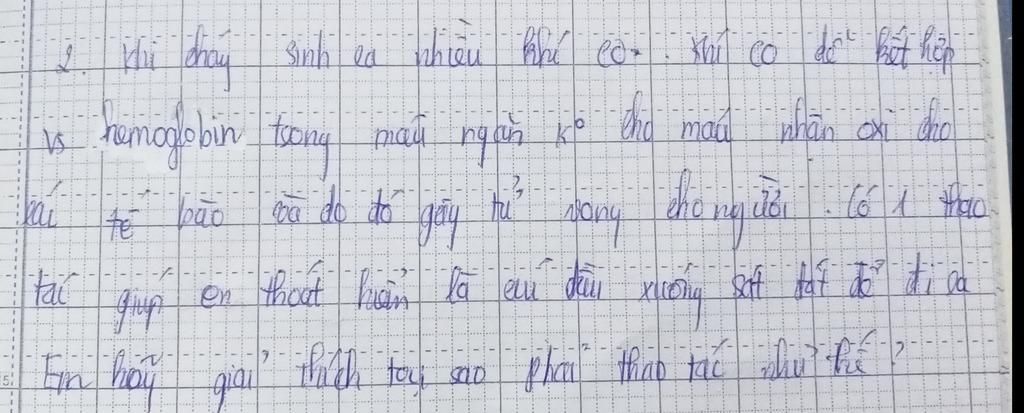 2. Khi cháy sinh ra nhiều khí co. Khí co dễ kết hợp
vs hemoglobin trong máu ngăn ko cho máu nhận oxi cho
các tế bào và do đó gây tử vong cho người. Có 1 thao
tác giúp en thoát hiểm là cúi đầu xuống sát đất để đi ra
Em hãy giải thích tại sao phải thao tác như thế?